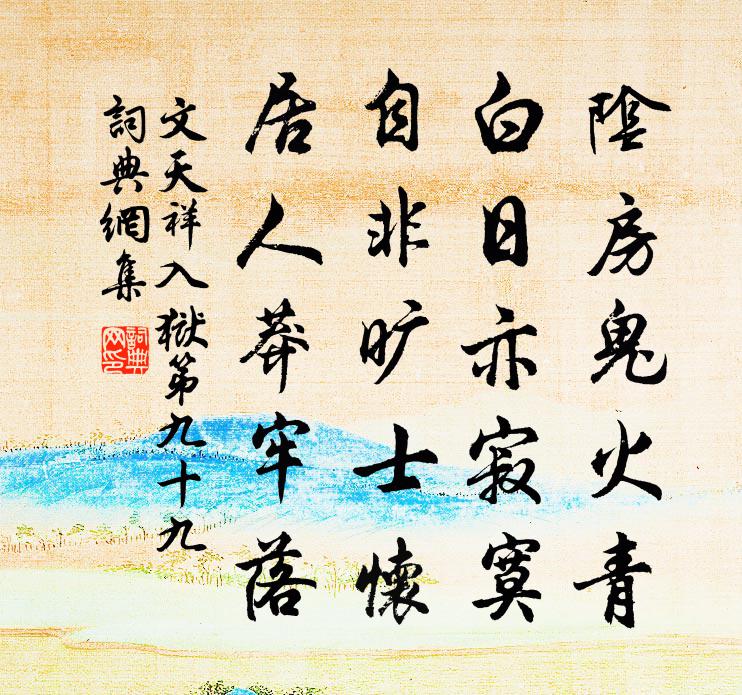 陰房鬼火青
白日亦寂寞
自非旷士懷
居人莽牢落
文天祥入獄第九十九
詞典網集
詞典
网印